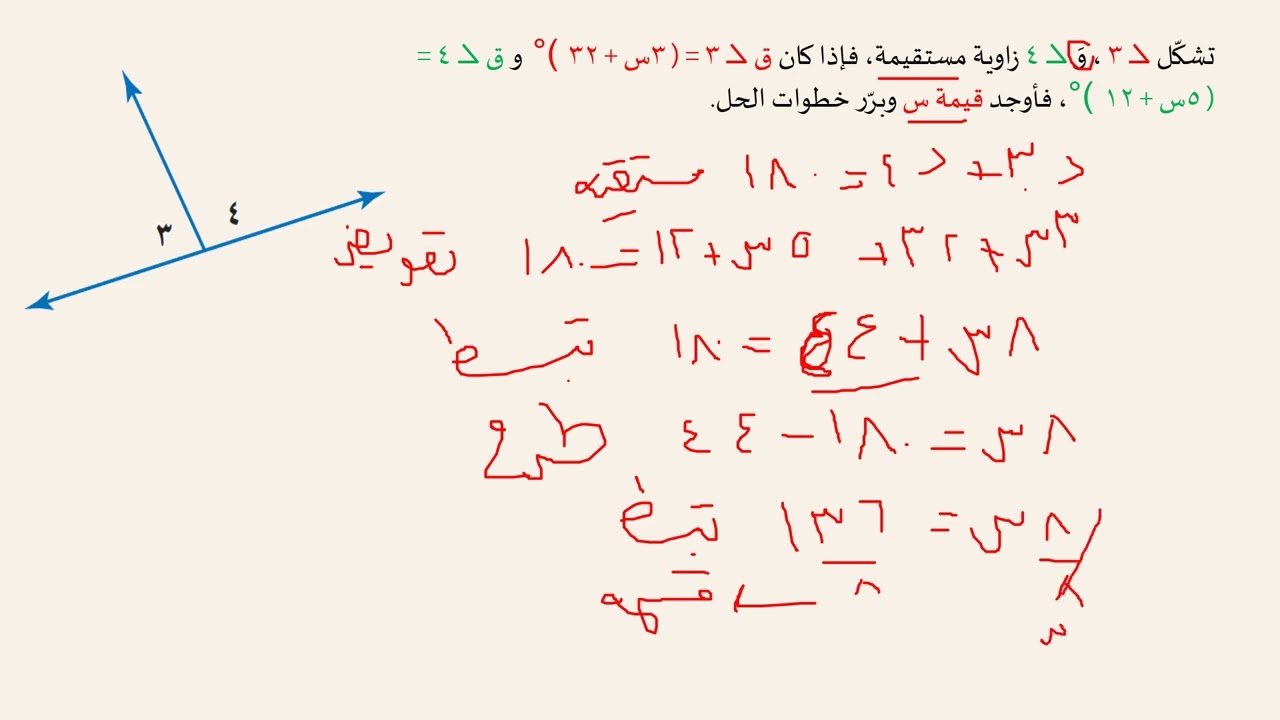 تشكّل ∠٣ ، وَ∠٤ زاوية مستقيمة، فإذا كان ق∠٣ = (٣س + ٣٢)° و ق∠٤ =
(٥س + ١٢)°، فأوجد قيمة س وبرّر خطوات الحل.
٣
٤
∠٣ + ∠٤ = ١٨٠ مستقيمه
٣س + ٣٢ + ٥س + ١٢ = ١٨٠ تعويض
٨س + ٤٤ = ١٨٠ تبسيط
٨س = ١٨٠ - ٤٤ طرح
٨س = ١٣٦
٨ ٨ قسمه
س